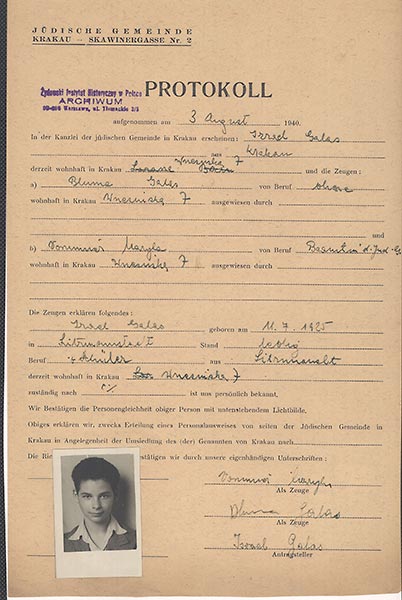 JÜDISCHE GEMEINDE
KRAKAU – SKAWINERGASSE Nr. 2
Żydowski Instytut Historyczny w Polsce
ARCHIWUM
00-090 Warszawa, ul. Tłomackie 3/5
PROTOKOLL
aufgenommen am 3 August 1940.
In der Kanzlei der jüdischen Gemeinde in Krakau erschienen: Izrael Galas
aus Krakau
derzeit wohnhaft in Krakau Wnesinska 7 und die Zeugen:
a) Bluma Galas von Beruf
wohnhaft in Krakau Wnesinska 7 ausgewiesen durch
und
b) Marya von Beruf Beamtin d. Jüd. G.
wohnhaft in Krakau Wnesinska 7 ausgewiesen durch
Die Zeugen erklären folgendes:
Izrael Galas geboren am 11. 7. 1925
in Litzmannstadt Stand ledig
Beruf Schüler aus Litzmannstadt
derzeit wohnhaft in Krakau Wnesinska 7
zuständig nach ist uns persönlich bekannt,
Wir Bestätigen die Personengleichheit obiger Person mit untenstehendem Lichtbilde.
Obiges erklären wir, zwecks Erteilung eines Personalausweises von seiten der Jüdischen Gemeinde in
Krakau in Angelegenheit der Umsiedlung des (der) Genannten von Krakau nach
Die Ric stätigen wir durch unsere eigenhändigen Unterschriften:
Marya
Als Zeuge
Bluma Galas
Als Zeuge
Israel Galas
Antragsteller